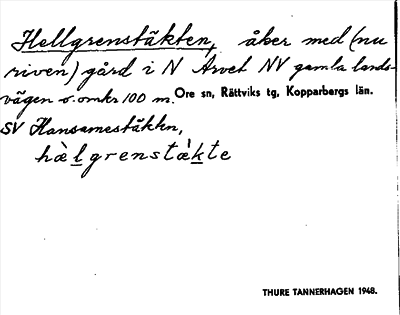 Hellgrenstäkten, åker med (nu
riven) gård i N Arvet NV gamla lands-
vägen o. omkr 100 m. Ore sn, Rättviks tg, Kopparbergs län.
SV Hansamestäkten,
hæ̀lgrenstæ̀kte
THURE TANNERHAGEN 1948.